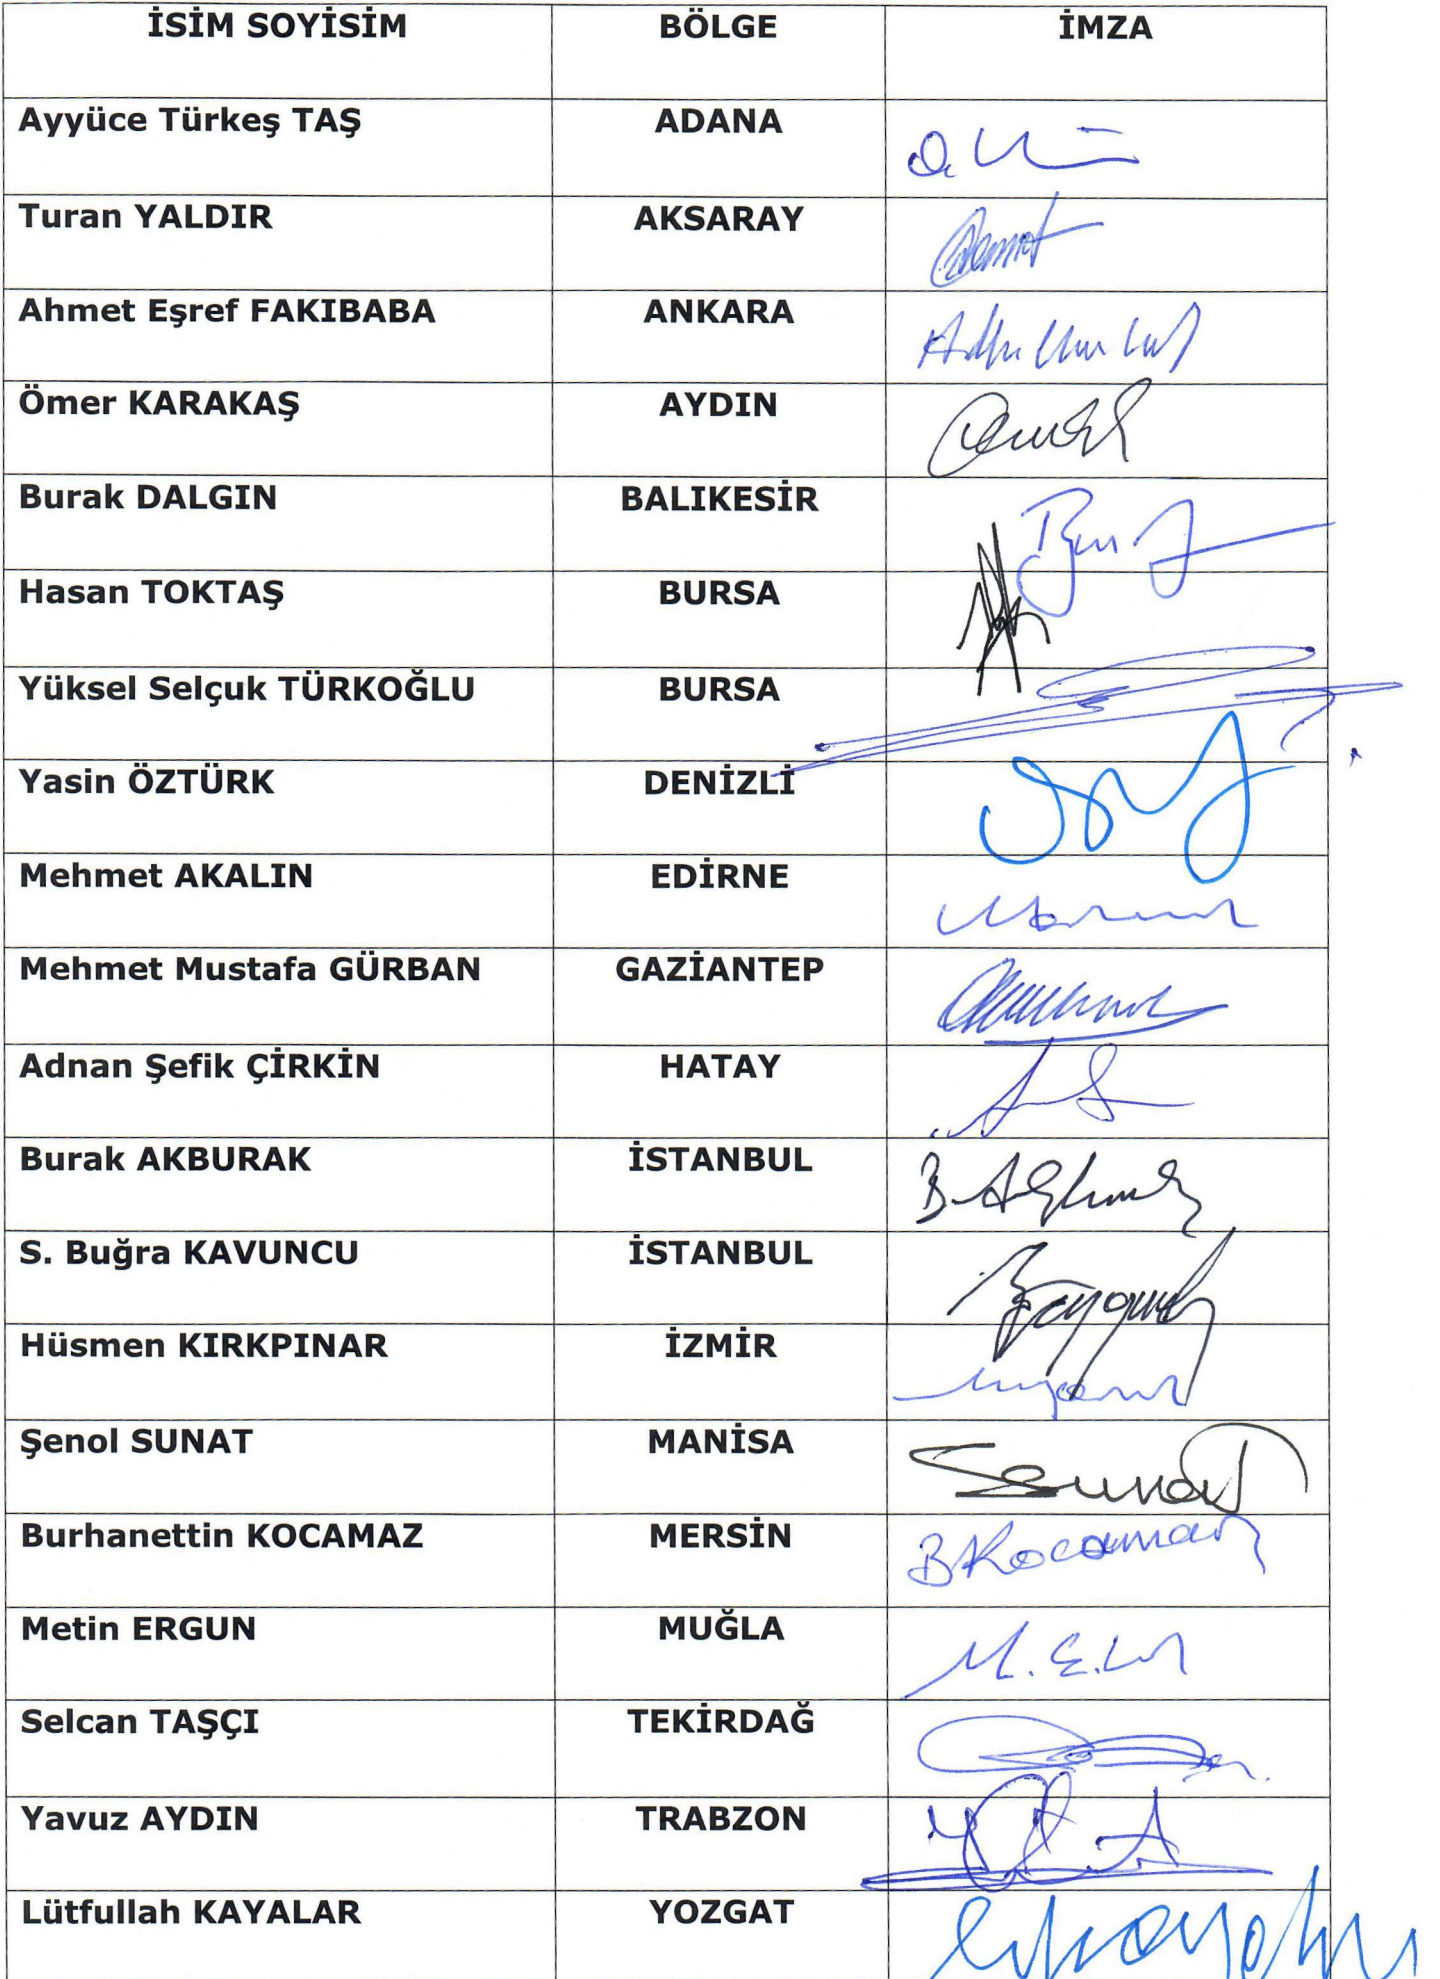 İSİM SOYİSİM BÖLGE İMZA
Ayyüce Türkeş TAŞ ADANA
Turan YALDIR AKSARAY
Ahmet Eşref FAKIBABA ANKARA
Ömer KARAKAŞ AYDIN
Burak DALGIN BALIKESİR
Hasan TOKTAŞ BURSA
Yüksel Selçuk TÜRKOĞLU BURSA
Yasin ÖZTÜRK DENİZLİ
Mehmet AKALIN EDİRNE
Mehmet Mustafa GÜRBAN GAZİANTEP
Adnan Şefik ÇİRKİN HATAY
Burak AKBURAK İSTANBUL
S. Buğra KAVUNCU İSTANBUL
Hüsmen KIRKPINAR İZMİR
Şenol SUNAT MANİSA
Burhanettin KOCAMAZ MERSİN
Metin ERGUN MUĞLA
Selcan TAŞÇI TEKİRDAĞ
Yavuz AYDIN TRABZON
Lütfullah KAYALAR YOZGAT